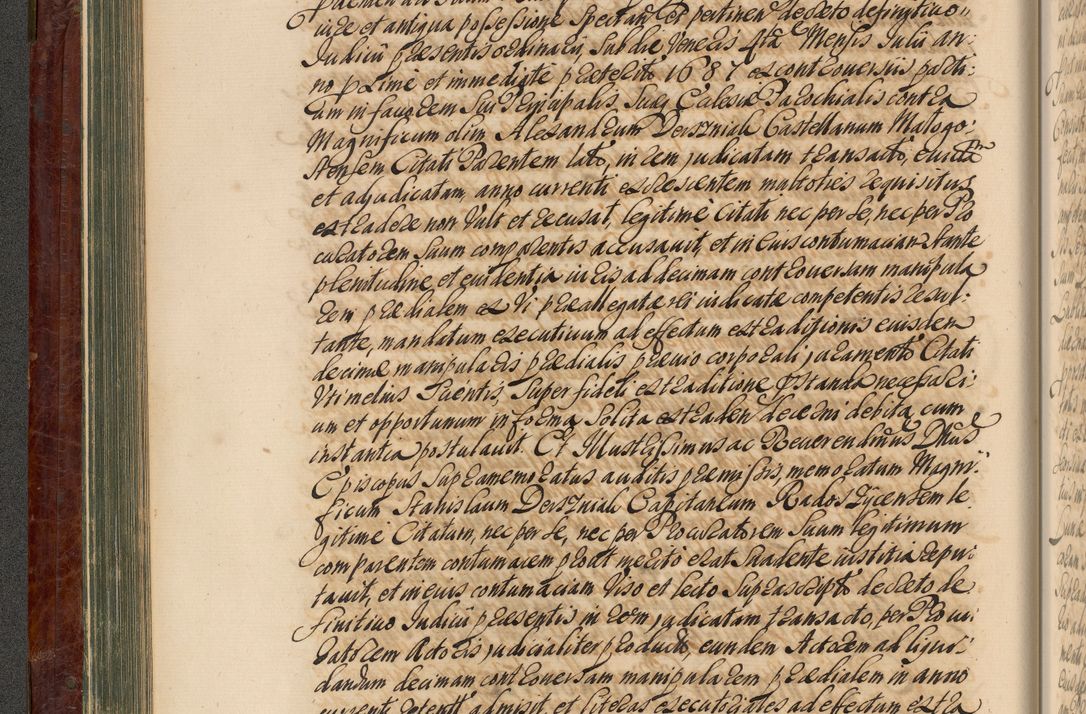 iure et antiqua possessione Spectan et pertinen decreto definitivo
Judicii præsentis ordinarii, sub die Veneris 4ta Mensis Julii an:
no proxime et immediate præterito 1687 ex controversiis parti:
um in favorem sui Principalis, suæq Ecclesiæ Parochialis contra
Magnificum olim Alexandrum Derszniak Castellanum Malogo:
stensem Citati Parentem lato, in rem iudicatam transacto, evictā
et adjudicatam, anno currenti et rescentem multoties requisitus
extradere non Vult et recusat, legitime Citati nec per se, nec per Pro
curatorem suum comparentis accusavit, et in eius contumaciam stante
plenitudine et evidentia iuris ad decimam controversam manipula
rem prædialem ex Vi præallegatæ rei iudicatæ competentis resul:
tante, mandatum executivum ad effectum extraditionis eiusdem
decimæ manipularis prædialis prævio corporali juramento Citati
Uti melius Scientis, super fideli extraditione præstanda necessari:
um et opportunum in forma solita extraden decerni debita cum
instantia postulavit. Et Illustrissimus ac Reverendmus Dnus
Episcopus supramemoratus auditis præmissis, memoratum Magni:
ficum Stanislaum Derszniak Capitaneum Radoszycensem le
gitime Citatum, nec per se, nec per Procuratorem suum legitimum
comparentem contumacem prout merito erat suadente iustitia repu:
tavit, et in eius contumaciam Viso et lecto suprascripto decreto de
finitivo Judicii præsentis in rem judicatam transacto, per Procu:
ratorem Actoris judicialiter producto, eundem Actorem ad liqui:
dandum decimam controversam manipularem prædialem in anno
current detent admisit et literas executoriales ad effectum extra